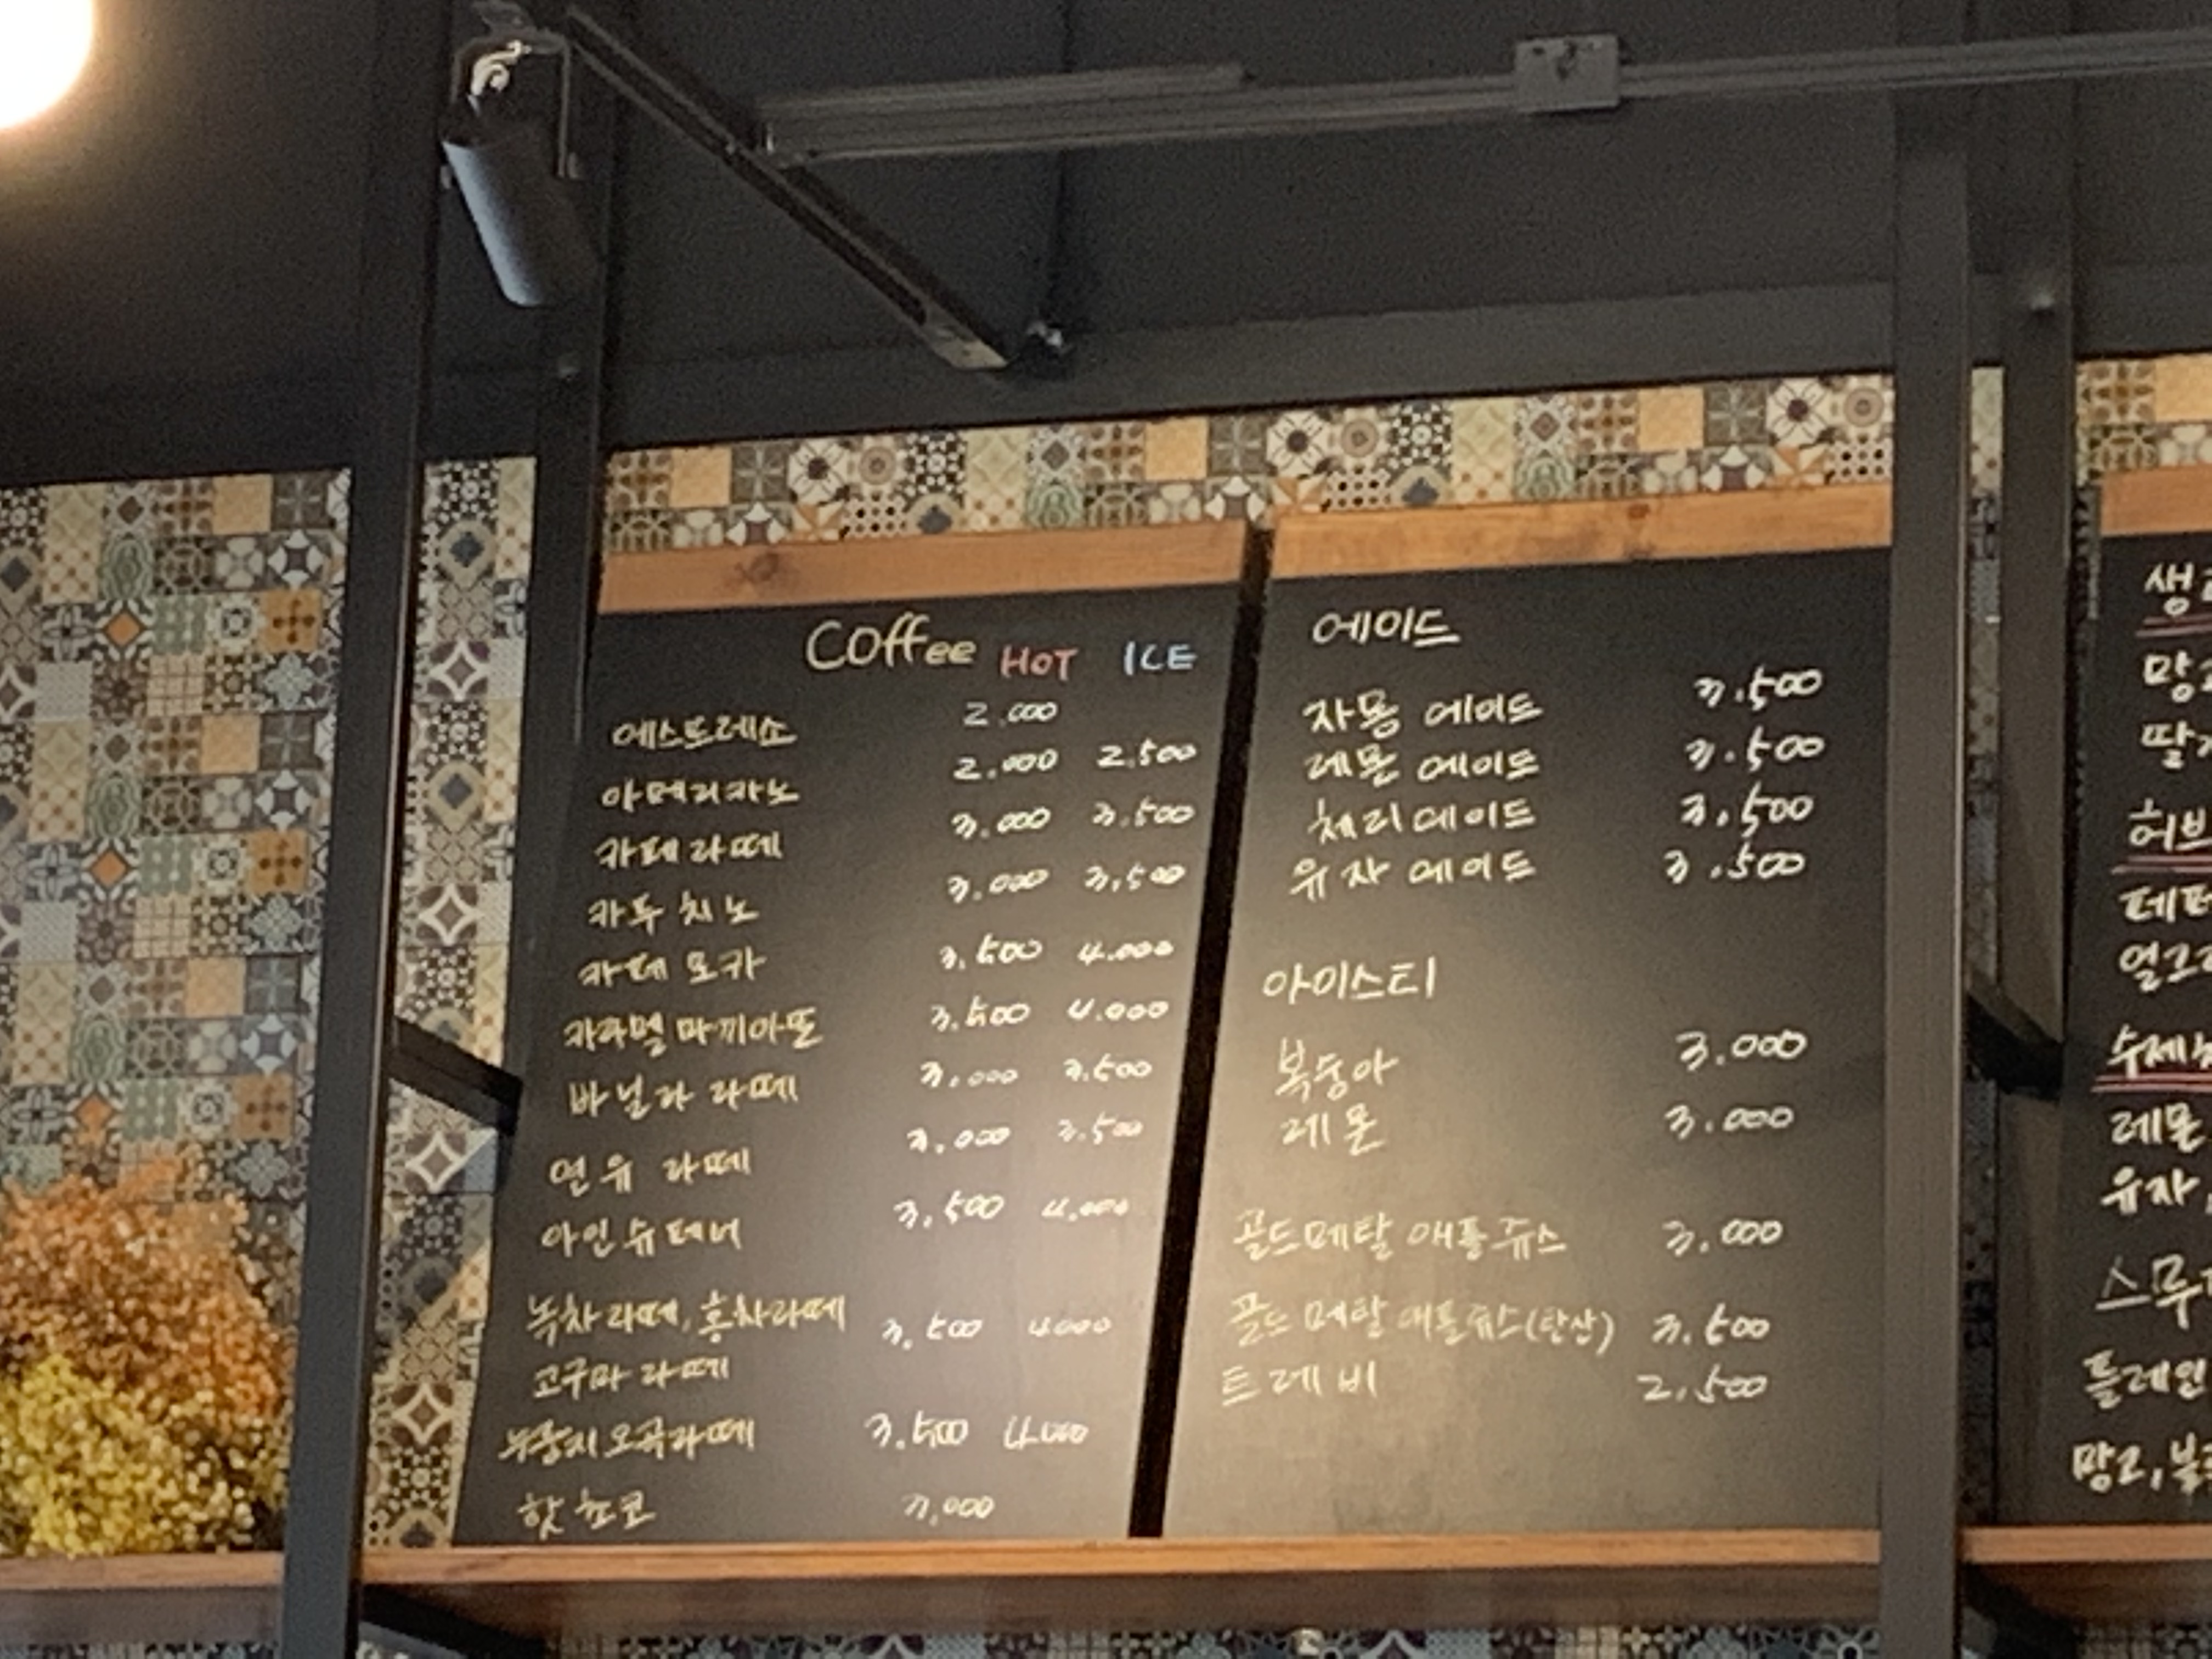 Coffee HOT ICE
에스프레소 2.000
아메리카노 2.000 2.500
카페라떼 3.000 3.500
카푸치노 3.000 3.500
카페모카 3.500 4.000
카라멜 마끼아또 3.500 4.000
바닐라 라떼 3.000 3.500
연유 라떼 3.000 3.500
아인슈페너 3.500 4.000
녹차라떼, 홍차라떼 3.500 4.000
고구마 라떼
누룽지오곡라떼 3.500 4.000
핫쵸코 3,000
에이드
자몽 에이드 3.500
레몬 에이드 3.500
체리에이드 3.500
유자 에이드 3.500
아이스티
복숭아 3.000
레몬 3.000
골드메달 애플쥬스 3.000
골드메달 애플쥬스(탄산) 3.500
트레비 2.500
레몬
유자